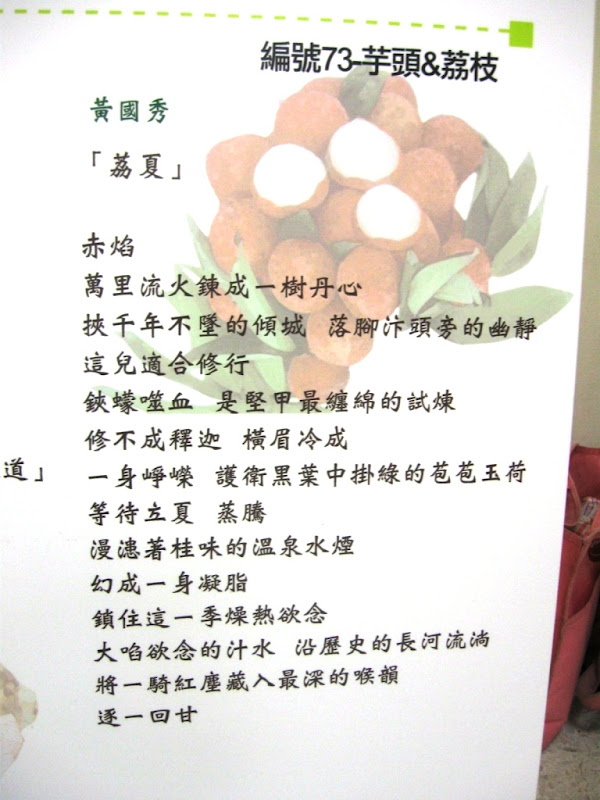 編號73-芋頭&荔枝
黃國秀
「荔夏」
赤焰
萬里流火鍊成一樹丹心
挾千年不墜的傾城 落腳汴頭旁的幽靜
這兒適合修行
鋏蠓噬血 是堅甲最纏綿的試煉
修不成釋迦 橫眉冷成
一身崢嶸 護衛黑葉中掛綠的苞苞玉荷
道」
等待立夏 蒸騰
漫漶著桂味的溫泉水煙
幻成一身凝脂
鎖住這一季燥熱欲念
大啗欲念的汁水 沿歷史的長河流淌
將一騎紅塵藏入最深的喉韻
逐一回甘